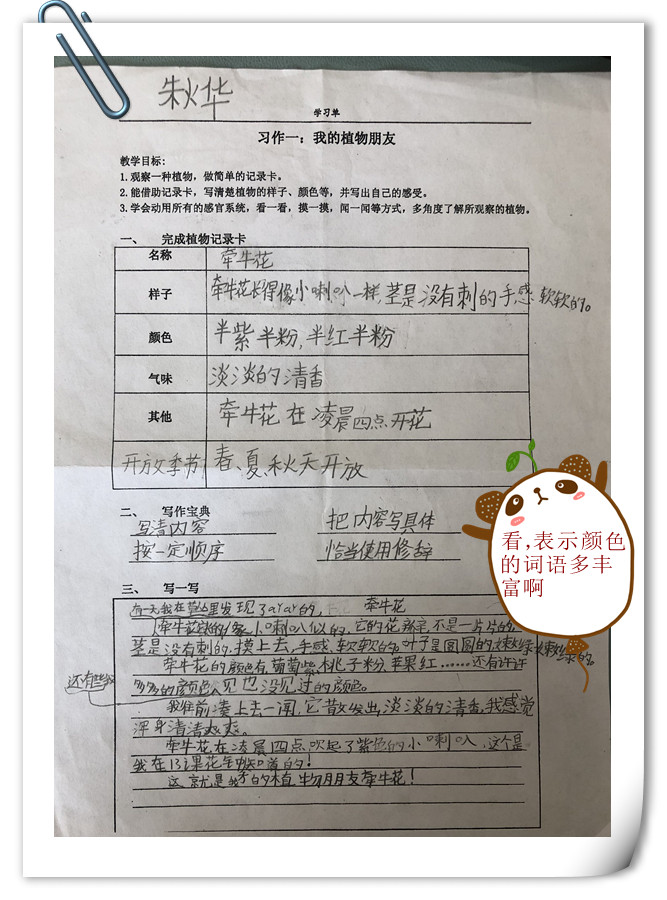 朱火华
学习单
习作一：我的植物朋友
教学目标：
1.观察一种植物，做简单的记录卡。
2.能借助记录卡，写清楚植物的样子、颜色等，并写出自己的感受。
3.学会动用所有的感官系统，看一看，摸一摸，闻一闻等方式，多角度了解所观察的植物。
一、 完成植物记录卡
名称 牵牛花
样子 牵牛花长得像小喇叭一样，茎是没有刺的手感软软的。
颜色 半紫半粉，半红半粉
气味 淡淡的清香
其他 牵牛花在凌晨四点开花
开放季节 春、夏、秋天开放
二、 写作宝典
写清内容 把内容写具体
按一定顺序 恰当使用修辞
看,表示颜色
的词语多丰
富啊
三、 写一写
有一天我在 里发现了 的， 牵牛花
牵牛花 的像小喇叭似的，它的花 不是一片片的，
茎是没有刺的，摸上去，手感软软的。叶子是圆圆的，嫩绿嫩绿的。
牵牛花的颜色有葡萄紫、桃子粉、苹果红……还有许许
多多的颜色，见也没见过的颜色。
还有些
我往前凑上去一闻，它散发出淡淡的清香，我感觉
浑身清清爽爽。
牵牛花在凌晨四点吹起了紫色的小喇叭，这个是
我在13课花钟 知道的！
这就是我 的植物朋友牵牛花！